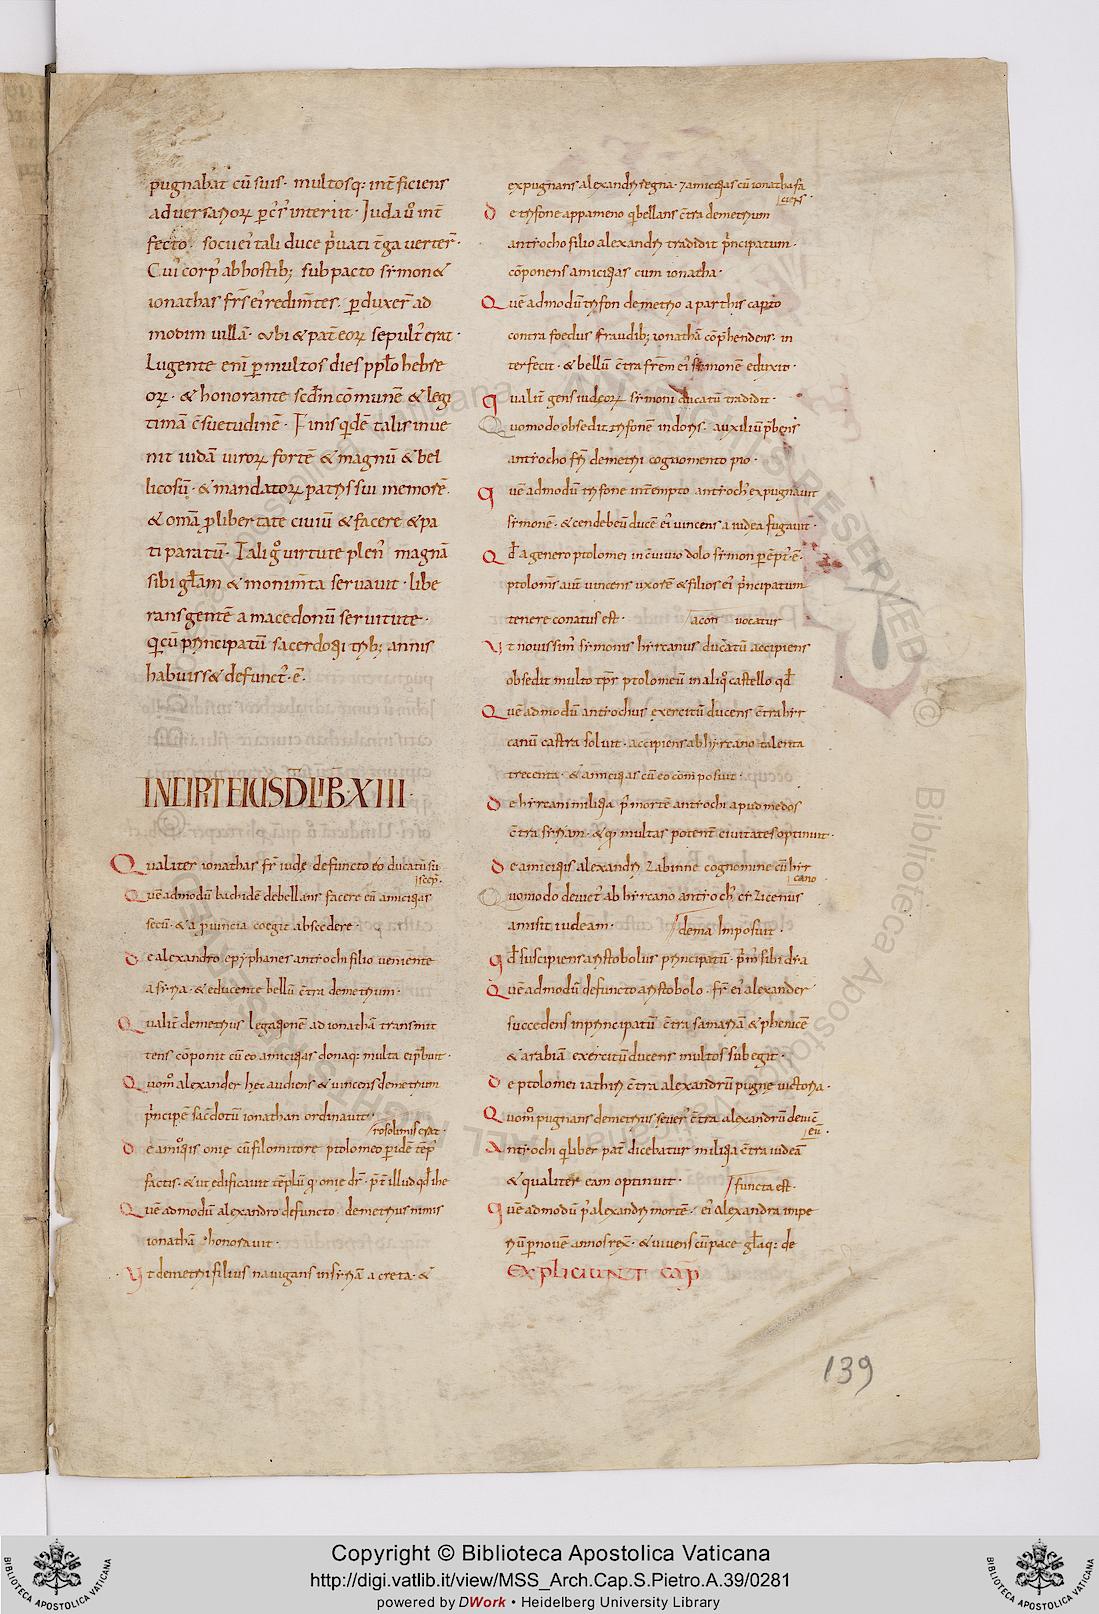 pugnabat cū suis· multosq: int̄ficiens
adversarioꝝ p̄cr̄s interiit· Iuda ū int̄
fecto· socii eꝰ tali duce p̄vati t̄ga verter̄·
Cuiꝰ corpꝰ ab hostib; sub pacto simon &
ionathas fr̄s eiꝰ redim̄tes· p̄duxer̄ ad
modim villā· ubi & pat̄ eoꝝ sepult̄ erat·
Lugente enī p̄ multos dies pplo hebre
oꝝ· & honorante scd̄m cōmunē & legi
timā c̄suetudinē· Finis qdē talis inve
nit iudā viroꝝ fortē & magnū & bel
licosū· & mandatoꝝ patris sui memorē·
& omā p̄ libertate civiū & facere & pa
ti paratū· Tali gͦ virtute plenꝰ magnā
sibi glām & monim̄ta servavit· libe
rans gentē a macedonū servitute·
qi cū principatū sacerdotii trib; annis
habuiss& defunctꝰ· ē·
INCIPIT EIUSD LIB· XIII·
Qualiter ionathas fr̄ iudę defuncto eo ducatū su
scep̄·
Quē admodū bachidē debellans facere cū amicitias
secū· & a p̄vincia coegit abscedere·
De alexandro epyphanes antiochi filio veniente
a siria· & educente bellū c̄tra demetrium·
Qualit̄ demetrius legationē ad ionathā transmit
tens cōponit cū eo amicitias donaq: multa ei p̄buit·
Quomͦ alexander hęc audiens & vincens demetrium
p̄ncipē sac̄dotū ionathan ordinavit·
rosolimis erat·
De amicitiis onię cū filomitore ptolomeo p̄ idē tēp̄
factis· & ut edificavit tēplū qͥ onię dr̄· p̄t̄ illud qd̄ ihe
Quē admodū alexandro defuncto demetrius nimis
ionathā honoravit·
Ut demetri filius navigans in siriā a creta· &
expugnans alexandri regna· 7 amicitias cū ionatha fa
ciens·
De trifone appameno qͥ bellans c̄tra demetrium
antiocho filio alexandri tradidit p̄ncipatum·
cōponens amicitias cum ionatha·
Quē admodū trifon demetrio a parthis capto
contra foedus fraudib; ionathā cōp̄hendens· in
terfecit· & bellū c̄tra fr̄em eiꝰ simonē eduxit·
Qualit̄ gens iudeoꝝ simoni ducatū tradidit·
Quomodo obsedit trifonē in doris· auxiliū p̄bens
antiocho fr̄i demetri cognomento pio·
Quē admodū trifone int̄empto antiochꝰ expugnavit
simonē· & cendebeū ducē eiꝰ vincens a iudea fugavit·
Qd̄ a genero ptolomei in c̄vivio dolo simon p̄ēptꝰ· ē·
ptolomꝰs aut̄ vincens uxorē & filios eiꝰ p̄ncipatum
tenere conatus est·
/acon vocatur
Ut novissimꝰ simonis hircanus ducatū accipiens
obsedit multo tp̄r ptolomeū in aliqͦ castello qd̄
Quē admodū antiochus exercitū ducens c̄tra hir
canū castra solvit· accipiens ab hircano talenta
trecenta· & amicitias cū eo composuit·
De hircani militia pꝰ mortē antiochi apud medos
c̄tra siriam· & qͥ multas potent̄ civitates optinuit·
De amicitiis alexandri zabinnę cognomine cū hir
cano
Quomodo devictꝰ ab hircano antiochꝰ cizicenus
amisit iudeam·
/dema Imposuit·
Qd̄ suscipiens aristobolus principatū· p̄mꝰ sibi dia
Quē admodū defuncto aristobolo· fr̄ eiꝰ alexander
succedens in principatū c̄tra samariā & phenicē
& arabiā exercitū ducens multos subegit·
De ptolomei iathiri c̄tra alexandrū pugnę victoria·
Quomͦ pugnans demetrius severꝰ c̄tra alexandrū devicē
eū·
Antiochi qͥ liber pat̄ dicebatur militia c̄tra iudeā
& qualiter eam optinuit·
functa est·
Quē admodū pꝰ alexandri mortē· eiꝰ alexandra impe
riū p̄ novē annos rex̄· & vivens cū pace glaq: de
EXPLICIUNT CAP̄
139
Copyright © Biblioteca Apostolica Vaticana
http://digi.vatlib.it/view/MSS_Arch.Cap.S.Pietro.A.39/0281
powered by DWork • Heidelberg University Library